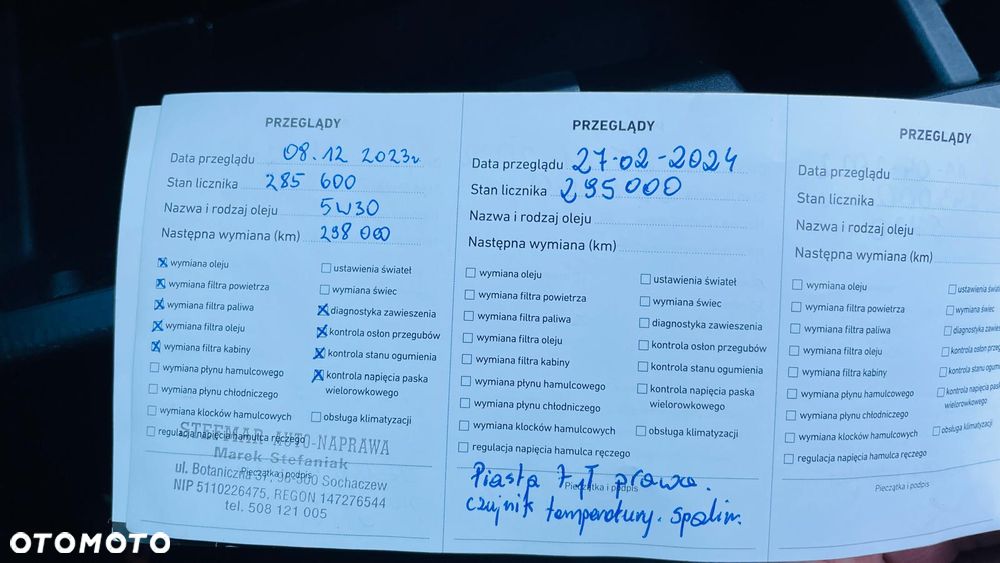 PRZEGLĄDY
Data przeglądu 08.12 2023r
Stan licznika 285 600
Nazwa i rodzaj oleju 5W30
Następna wymiana (km) 298 000
wymiana oleju
wymiana filtra powietrza
wymiana filtra paliwa
wymiana filtra oleju
wymiana filtra kabiny
wymiana płynu hamulcowego
wymiana płynu chłodniczego
wymiana klocków hamulcowych
regulacja napięcia hamulca ręcznego
ustawienia świateł
wymiana świec
diagnostyka zawieszenia
kontrola osłon przegubów
kontrola stanu ogumienia
kontrola napięcia paska
wielorowkowego
obsługa klimatyzacji
AUTO-NAPRAWA
Marek Stefaniak
Pieczątka i podpis
ul. Botaniczna 37, Sochaczew
NIP 5110226475, REGON 147276544
tel. 508 121 005
PRZEGLĄDY
Data przeglądu 27-02-2024
Stan licznika 295000
Nazwa i rodzaj oleju
Następna wymiana (km)
wymiana oleju
wymiana filtra powietrza
wymiana filtra paliwa
wymiana filtra oleju
wymiana filtra kabiny
wymiana płynu hamulcowego
wymiana płynu chłodniczego
wymiana klocków hamulcowych
regulacja napięcia hamulca ręcznego
ustawienia świateł
wymiana świec
diagnostyka zawieszenia
kontrola osłon przegubów
kontrola stanu ogumienia
kontrola napięcia paska
wielorowkowego
obsługa klimatyzacji
Pieczątka i podpis
Piasta prawa.
czujnik temperatury. spalin.
PRZEGLĄDY
Data przeglądu
Stan licznika
Nazwa i rodzaj oleju
Następna wymiana (km)
wymiana oleju
wymiana filtra powietrza
wymiana filtra paliwa
wymiana filtra oleju
wymiana filtra kabiny
wymiana płynu hamulcowego
wymiana płynu chłodniczego
wymiana klocków hamulcowych
regulacja napięcia hamulca ręcznego
ustawienia świateł
wymiana świec
diagnostyka zawieszenia
kontrola osłon przeg
kontrola stanu ogumie
kontrola napięcia pas
wielorowkowego
obsługa klimatyzacji
Pieczątka i podpis
OTOMOTO